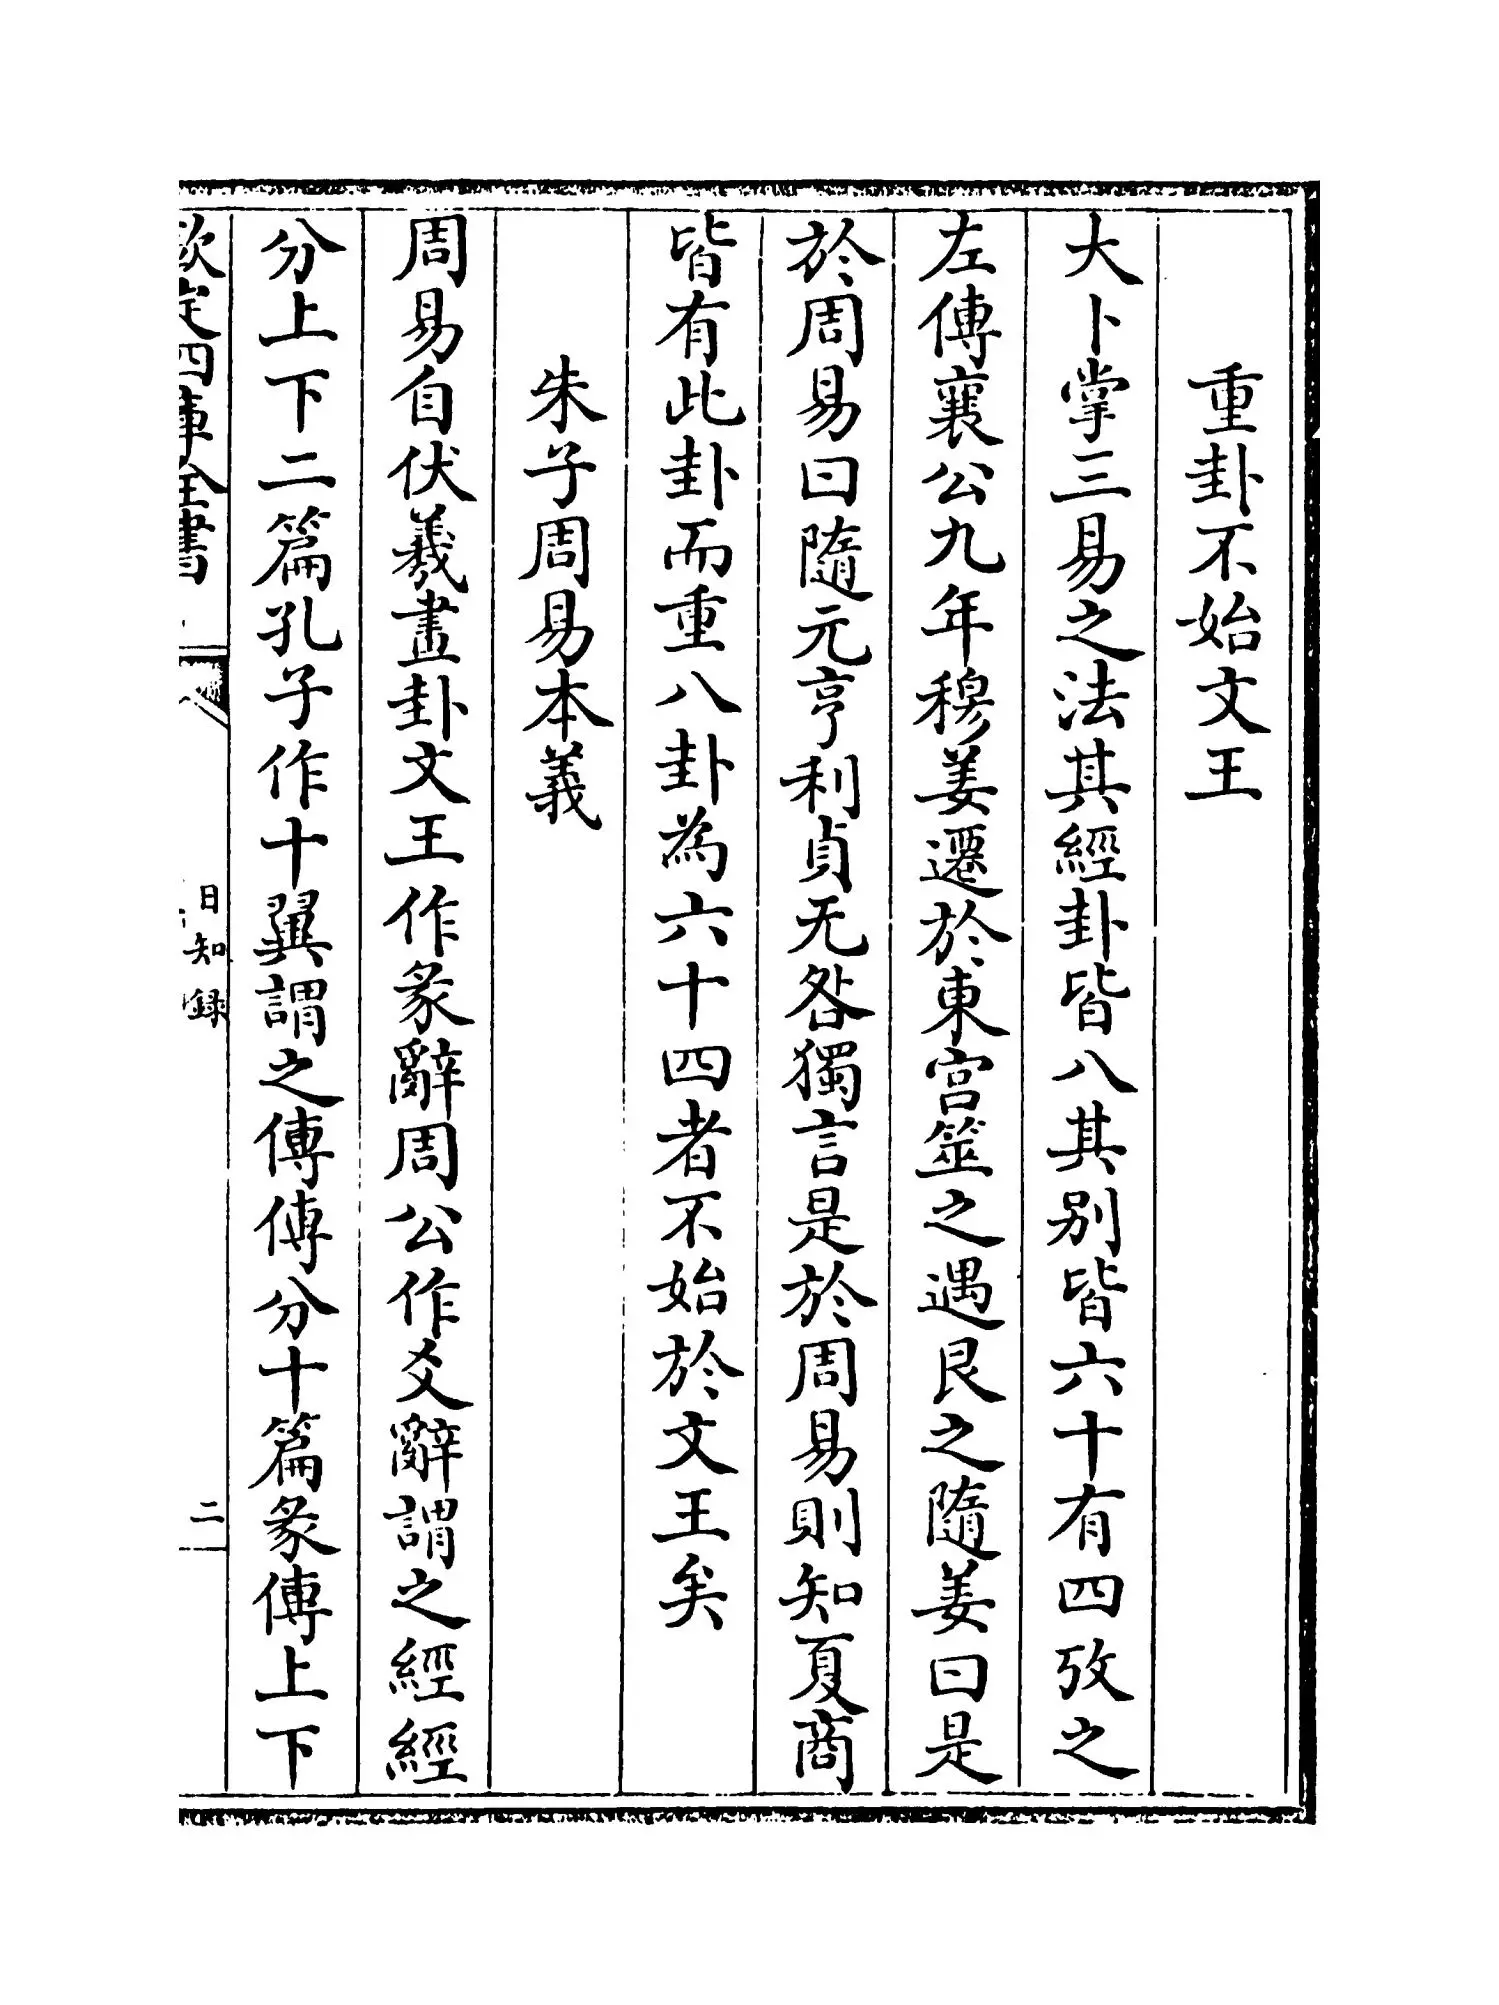 重卦不始文王
大卜掌三易之法其經卦皆八其别皆六十有四攷之
左傳襄公九年穆姜遷於東宫筮之遇艮之隨姜曰是
於周易曰隨元亨利貞无咎獨言是於周易則知夏商
皆有此卦而重八卦為六十四者不始於文王矣
朱子周易本義
周易自伏羲畫卦文王作彖辭周公作爻辭謂之經經
分上下二篇孔子作十翼謂之傳傳分十篇彖傳上下
欽定四庫全書
日知録
二